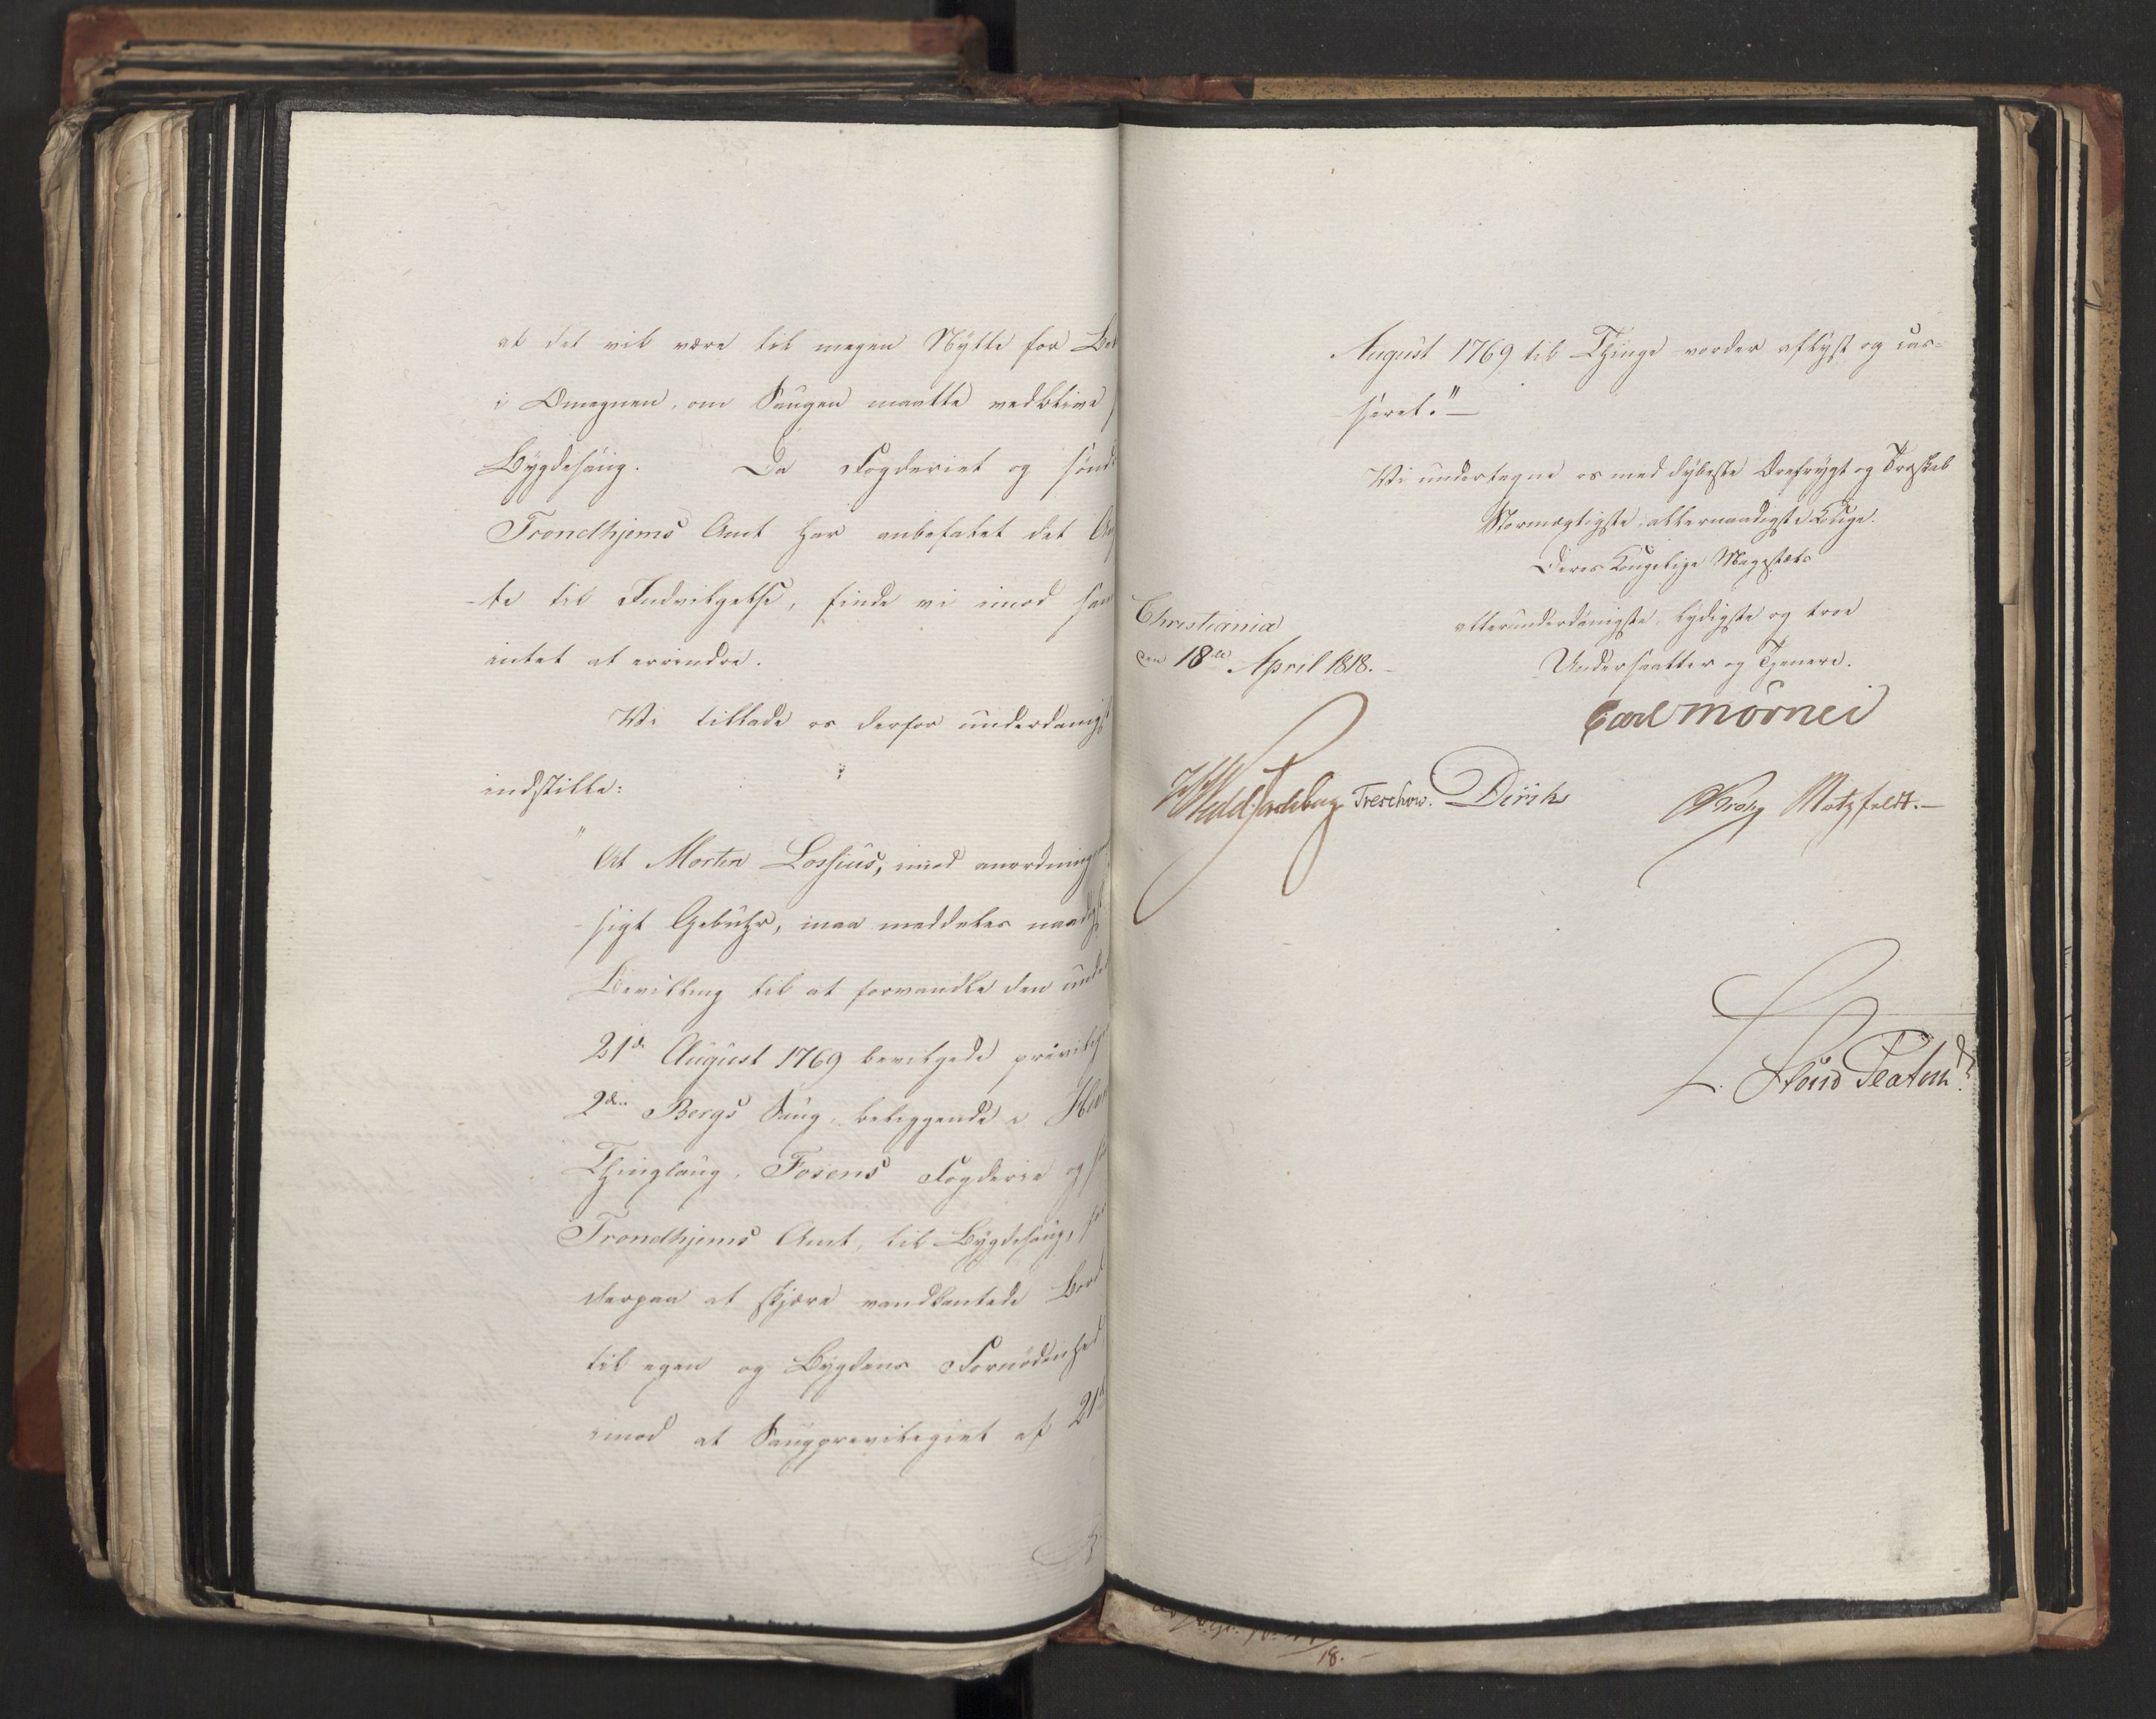 at det vil være til megen Nÿtte for
i Omegnen, om Saugen maatte vedblive
Bÿgdesaug. Da Fogderiet og sönd
Trondhjems Amt har anbefalet det
-te til Indvilgelse, finde vi imod
intet at erindre.
Vi tillade os derfor underdanigst
indstille:
"At Morten Lossius, imod anordnings
-sigt Gebuhr, maa meddeles naadigst
Bevilling til at forvandle den under
21de August 1769 bevilgede privileg
2den Bergs Saug, beliggende i
Thinglaug, Fosens Fogderie og
Trondhjems Amt, til Bÿgdesaug, for
derpaa at skjære vandkantede Bord
til egen og Bÿgdens Fornödenhed,
imod at Saugprivilegiet af 21de
August 1769 til Thinge vorder aflÿst og cas=
seret."—
Vi undertegne os med dÿbeste Ærefrÿgt og Troskab
Stormægtigste, allernaadigste Konge!
Deres Kongelige Majestæts
allerunderdanigste, lÿdigste og troe
Undersaatter og Tjenere.
Christiania
den 18de April 1818.
Carl Mörner
Wedel Jarlsberg Treschow. Diriks Krog Motzfeldt.—
L. Stoud Platou
18.